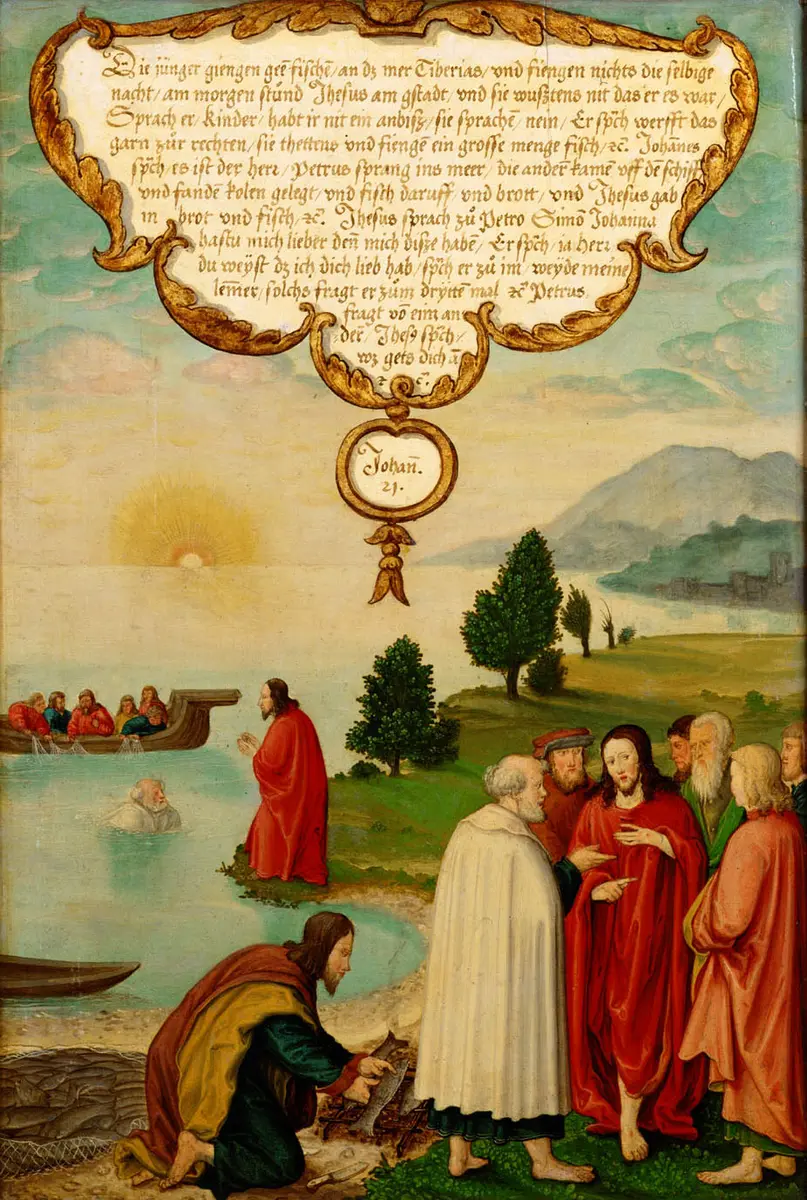 Die jünger giengen geē fischē / an dz mer Tiberias / vnd fiengen nichts die selbige
nacht / am morgen stůnd Jhesus am gstadt, vnd sie wusztens nit das er es war,
Sprach er, Kinder / habt ir nit ein anbisz / sie sprachē / nein / Er spch werfft das
garn zůr rechten / sie thettens vnd fiengē ein grosse menge fisch / ꝛc. Johānes
spch es ist der herr / Petrus sprang ins meer / die ander kamē vff dē schiff
vnd fandē kolen gelegt / vnd fisch daruff vnd brott / vnd Jhesus gab
in brot vnd fisch / ꝛc. Jhesus sprach zů Petro Simō Johanna
hastu mich lieber deñ mich disze haben / Er spch / ia herr
du weyst dz ich dich lieb hab / spch er zů im / weyde meine
lemer / solchs fragt er zům drytten mal ꝛc Petrus
fragt vō eim an
der / Jhesꝰ spch /
wz gets dich ā
ꝛc.
Johañ.
21.